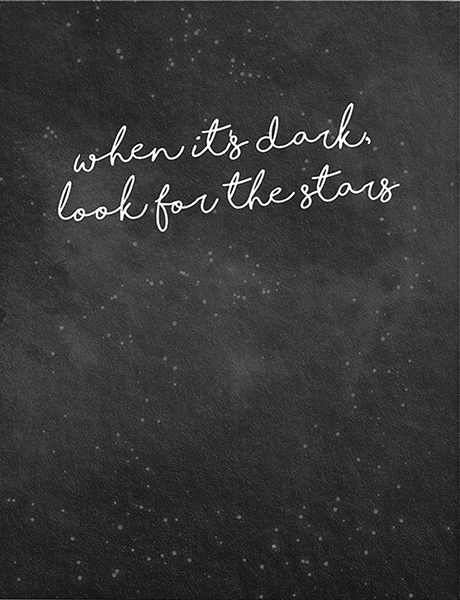 when it's dark,
look for the stars